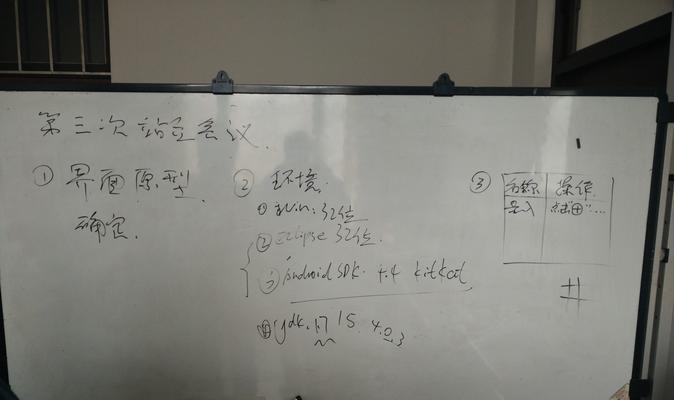 第三次站立会议.
① 界面原型
确定.
② 环境.
① win: 32位
② Eclipse 32位.
③ Android SDK. 4.4 kitkat
④ jdk. 1.7 15. 4.0.3
③
名称 操作
录入 点击"田"...